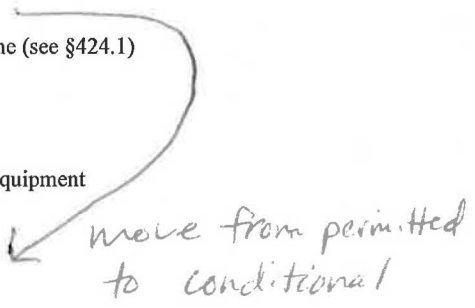 ne (see §424.1)
quipment
move from permitted
to conditional